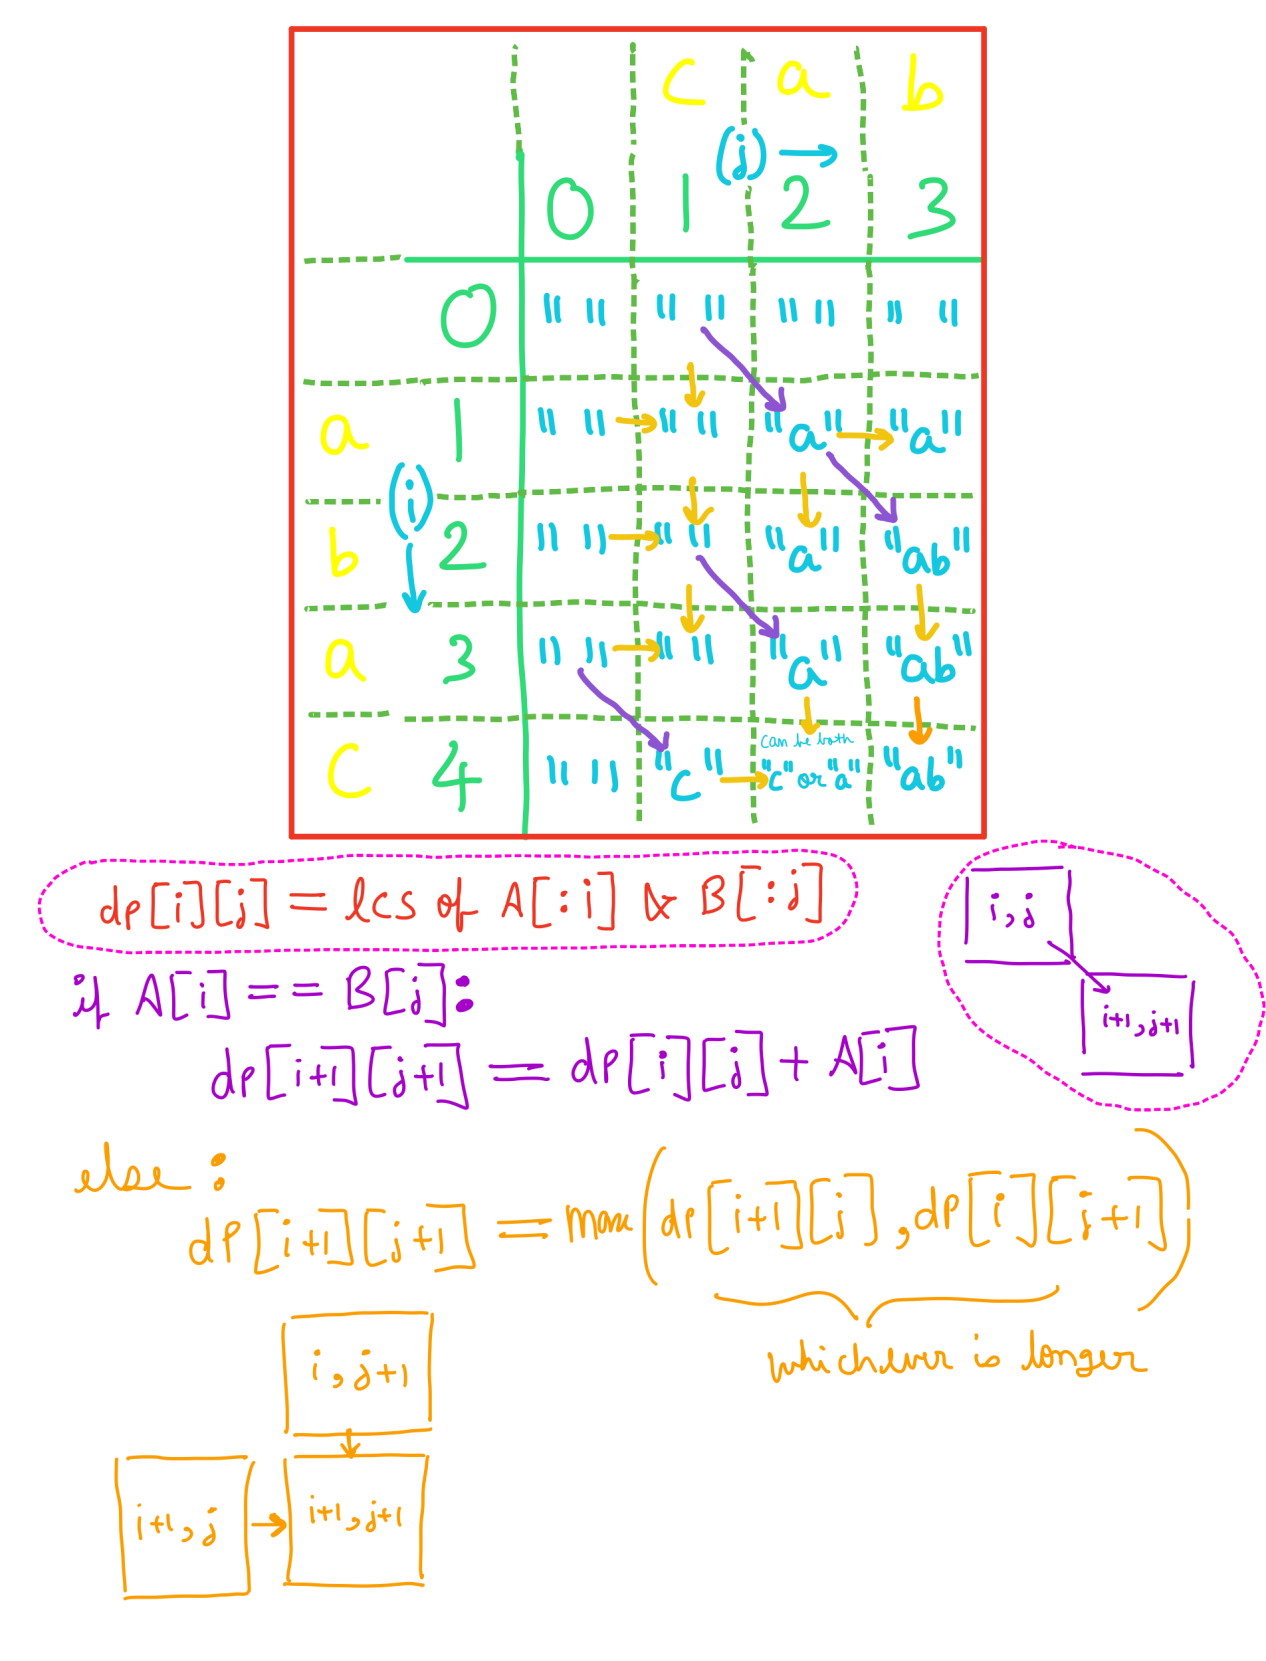 c a b
(j) →
0 1 2 3
0 " " " " " " " "
a 1 " " → " " "a" → "a"
(i)
b 2 " " → " " "a" "ab"
a 3 " " → " " "a" "ab"
can be both
c 4 " " "c" → "c" or "a" "ab"
dp[i][j] = lcs of A[:i] & B[:j]
i,j
if A[i] == B[j]:
i+1,j+1
dp[i+1][j+1] = dp[i][j] + A[i]
else:
dp[i+1][j+1] = max(dp[i+1][j],dp[i][j+1])
whichever is longer
i,j+1
i+1,j → i+1,j+1